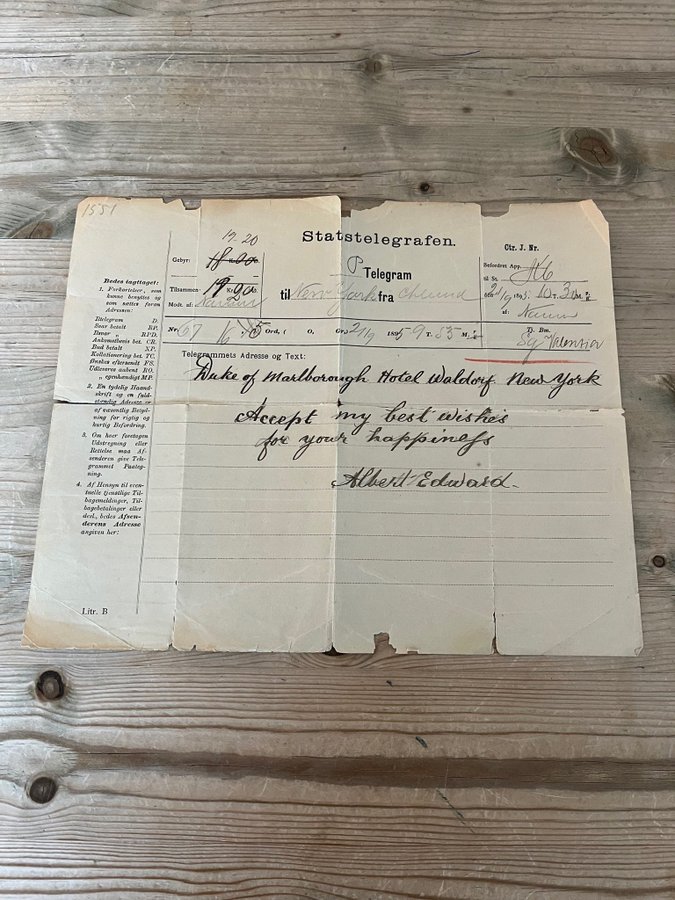 1551
19.20
Statstelegrafen.
Ctr. J. Nr.
Gebyr:
P Telegram
Befordret App.
Tilsammen 19 Kr. 20
til New York fra
til St.
Modt. af:
af:
Nr. 67 16/15 Ord, ( O, Gr.) 21/9 1895 9 T. 55 M.
D. Bm.
Bedes iagttaget:
1. Forkortelser, som
kunne benyttes og
som sættes foran
Adressen:
Iltelegram D.
Svar betalt RP.
Ilsvar RPD.
Ankomstbevis bet. CR.
Bud betalt XP.
Kollationering bet. TC.
Ønskes eftersendt FS.
Udleveres aabent RO.
egenhændigt MP.
2. En tydelig Haand-
skrift og en fuld-
stændig Adresse er
af væsentlig Betyd-
ning for rigtig og
hurtig Befordring.
3. Om heer foretagen
Udstregning eller
Rettelse maa Af-
senderen give Tele-
grammet Paateg-
ning.
4. Af Hensyn til even-
tuelle tjenstlige Til-
bagemeldinger, Til-
bagebetalinger eller
desl., bedes Afsen-
derens Adresse
angiven her:
Telegrammets Adresse og Text:
Duke of Marlborough Hotel Waldorf New York
Accept my best wishes
for your happiness
Albert Edward.
Litr. B